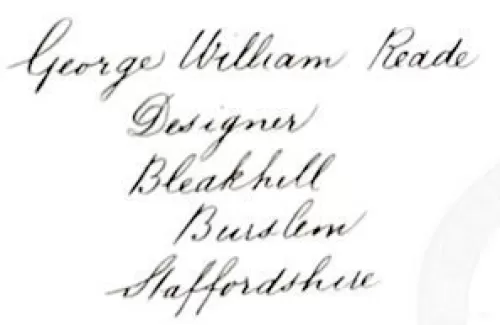 George William Reade
Designer
Bleakhill
Burslem
Staffordshire